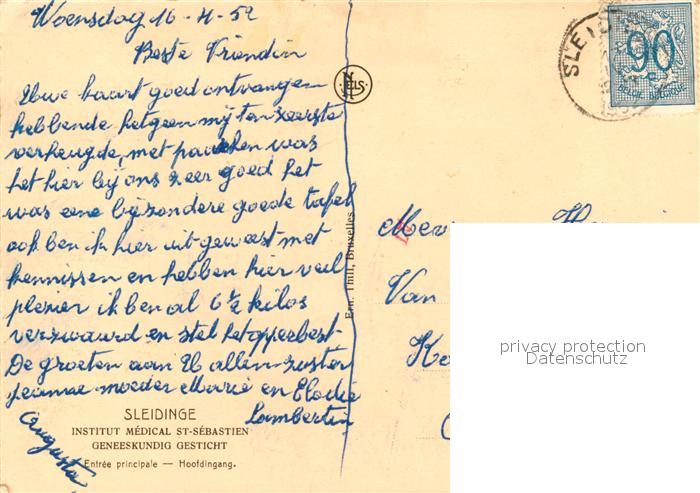 Woensdag 16-4-52
Beste Vriendin
Uwe kaart goed ontvangen
hebbende hetgeen mij ten zeerste
verheugde, met paaschen was
het hier bij ons zeer goed het
was eene bijzondere goede tafel
ook ben ik hier uit geweest met
kennissen en hebben hier veil
plezier ik ben al 6½ kilos
verzwaard en stel het oppeebest
De groeten aan U allen zuster
moeder Marie en Elodie
Lambertin
Augusta
SLEIDINGE
INSTITUT MÉDICAL ST-SÉBASTIEN
GENEESKUNDIG GESTICHT
Entrée principale — Hoofdingang.
NELS
Ern. Thill, Bruxelles
SLEI
90
BELGIE BELGIQUE
Van
privacy protection
Datenschutz